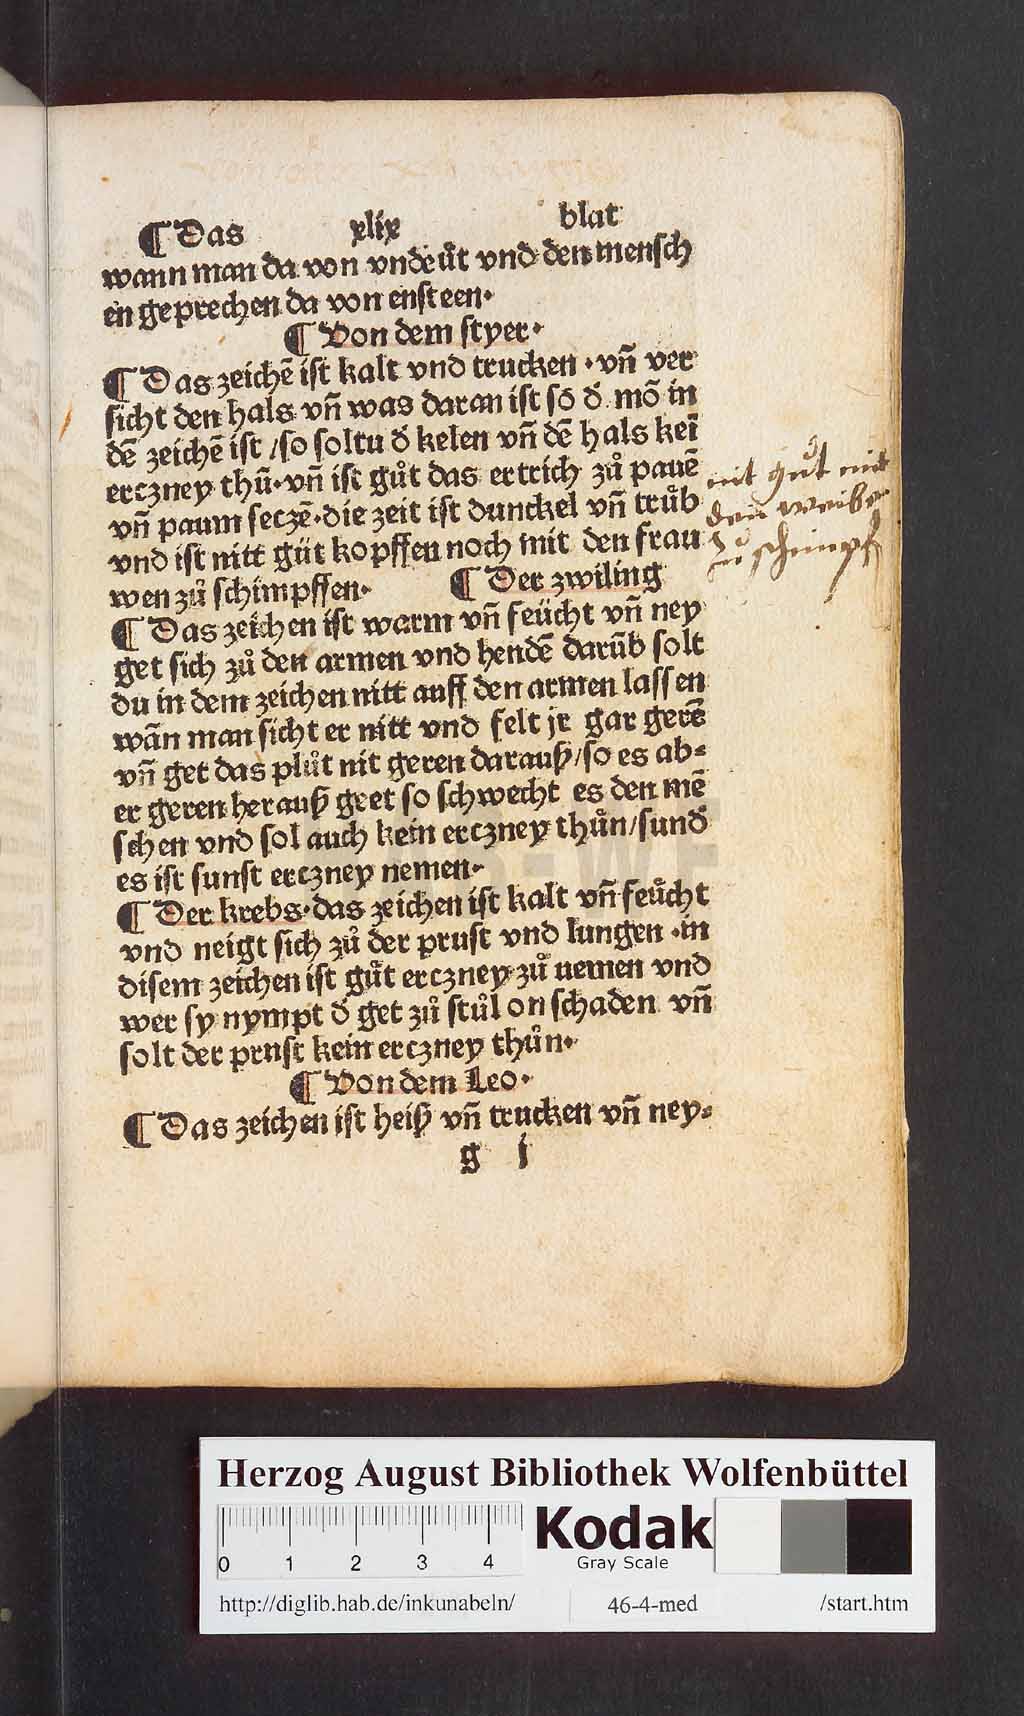 ¶ Das xlix blat
wann man da von vndeůt vnd den mensch
en geprechen da von ensteen·
¶ Von dem styer·
¶ Das zeichē ist kalt vnd trucken · vñ ver
sicht den hals vñ was daran ist so d̄ mō in
dē zeichē ist / so soltu d̄ kelen vñ dē hals keī
erczney thů· vñ ist gůt das ertrich zů pauē
vñ paum seczē· die zeit ist dunckel vñ trůb
vnd ist nitt gůt kopffen noch mit den frau
wen zů schimpffen· ¶ Der zwiling
¶ Das zeichen ist warm vñ feücht vñ ney
get sich zů den armen vnd hendē darūb solt
du in dem zeichen nitt auff den armen lassen
wān man sicht er nitt vnd felt jr gar gerē
vñ get das plůt nit geren darauß / so es ab⸗
er geren herauß geet so schwecht es den mē
schen vnd sol auch kein erczney thůn / sund̄
es ist sunst erczney nemen·
¶ Der krebs· das zeichen ist kalt vñ feücht
vnd neigt sich zů der prust vnd lungen · in
disem zeichen ist gůt erczney zů nemen vnd
wer sy nympt d̄ get zů stůl on schaden vñ
solt der prust kein erczney thůn·
¶ Von dem Leo·
¶ Das zeichen ist heiß vñ trucken vñ ney⸗
g i
nit gůt mit
den weiber
zu schimpf
Herzog August Bibliothek Wolfenbüttel
0 1 2 3 4
Kodak
Gray Scale
http://diglib.hab.de/inkunabeln/ 46-4-med /start.htm